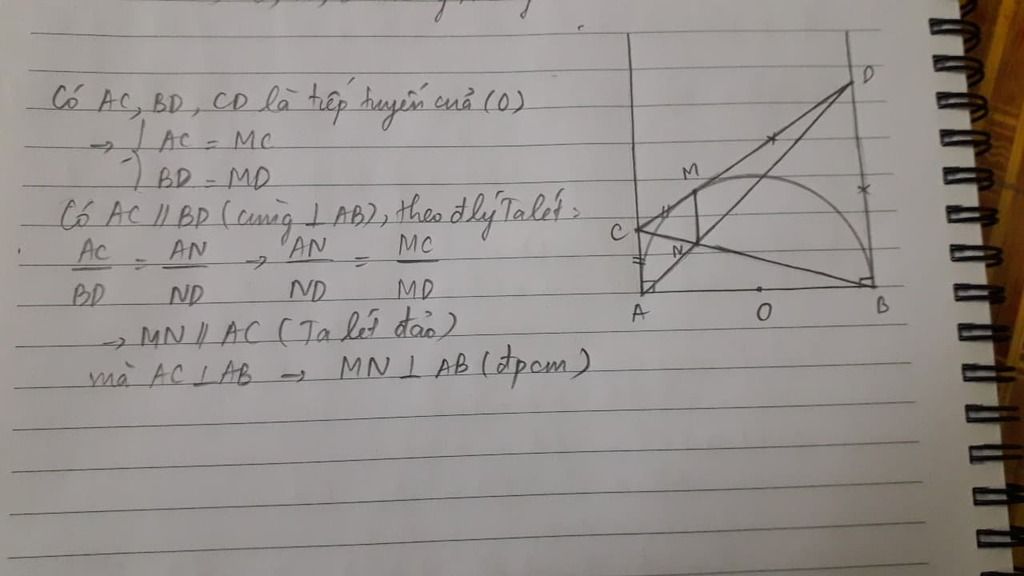 Có AC, BD, CD là tiếp tuyến cuả (O)
→ { AC = MC
BD = MD
Có AC // BD (cùng ⊥ AB), theo đlý Talét:
AC/BD = AN/ND → AN/ND = MC/MD
→ MN // AC (Ta lét đảo)
mà AC ⊥ AB → MN ⊥ AB (đpcm)
D
M
C
N
A
O
B